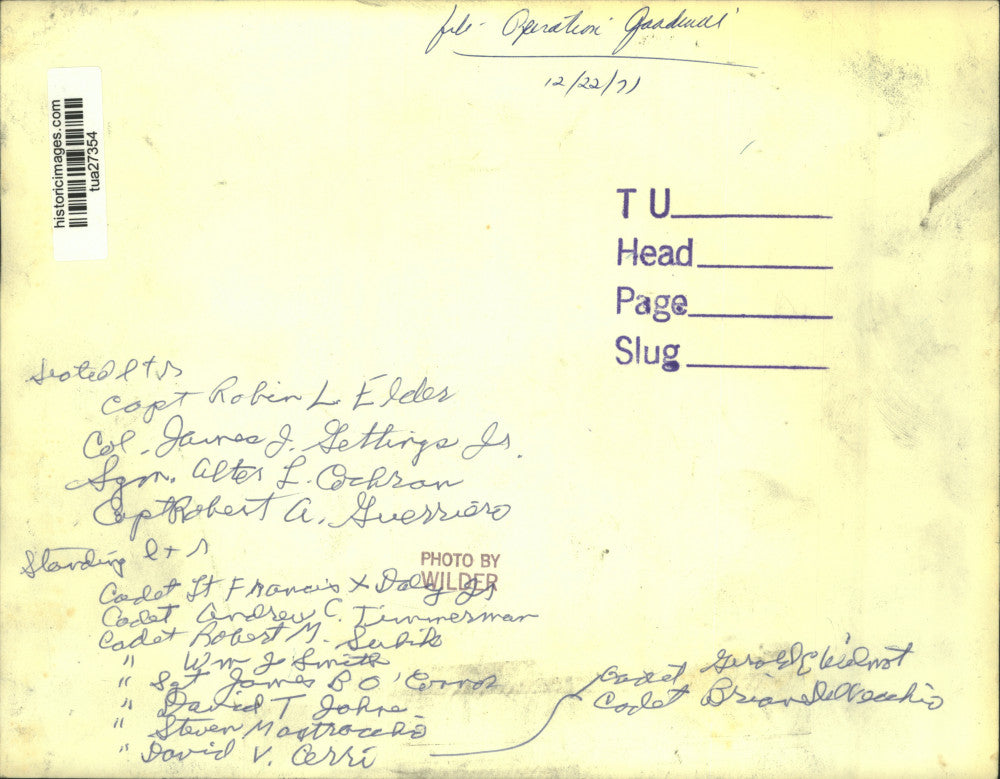 file - Operation Goodwill
12/22/71
historicimages.com
tua27354
T U
Head
Page
Slug
Seated l + r
Capt Robin L Elder
Col. James J. Gettings Jr.
Sgm. Alter L. Cochran
Capt Robert A. Guerriero
Standing l + r
PHOTO BY
WILDER
Cadet Lt Francis X Daley Jr
Cadet Andrew C. Timmerman
Cadet Robert M. Subik
" Wm J Smith
" Sgt James B O'Connor
" David T Johns
" Steven Mastrocchio
" David V. Cerri
Cadet Gerold C
Cadet Brian DelVecchio